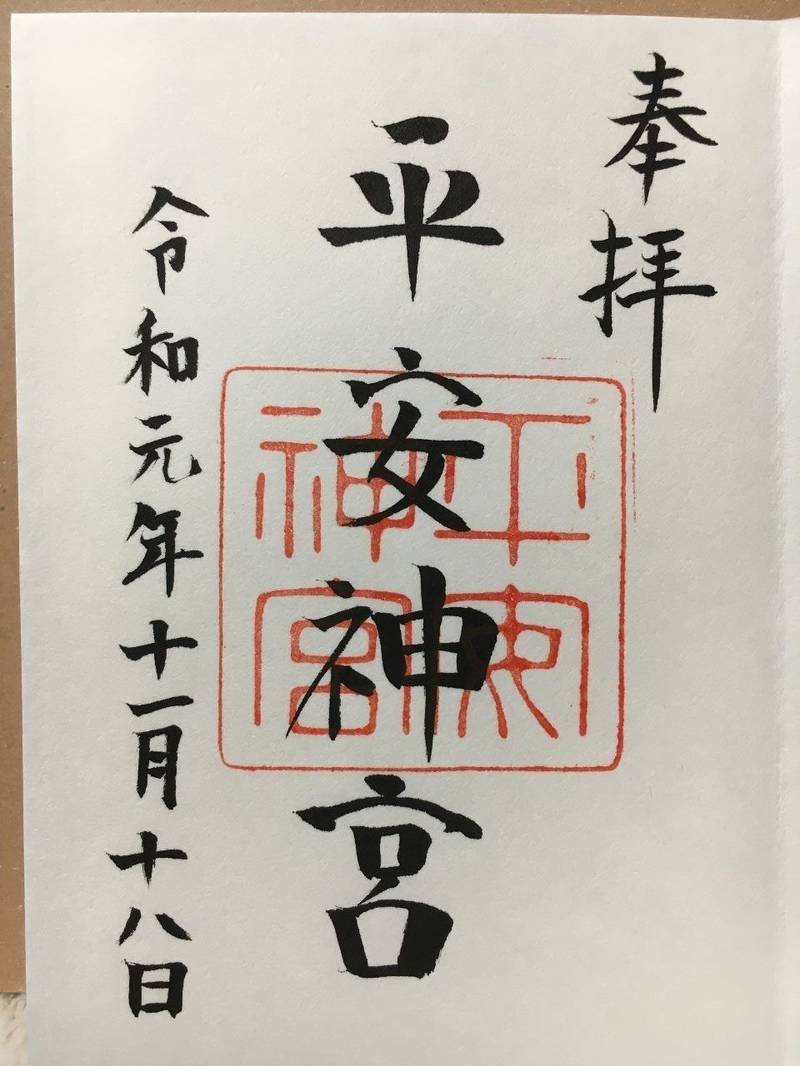 奉拝
平安神宮
平安神宮
令和元年十一月十八日